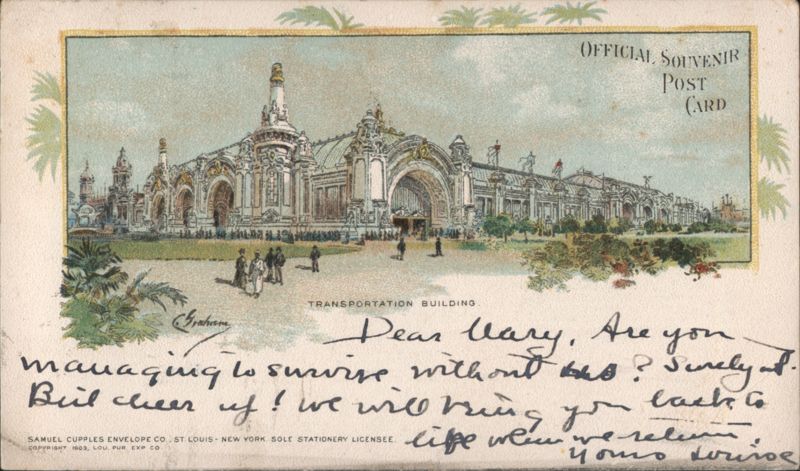 OFFICIAL SOUVENIR
POST
CARD
TRANSPORTATION BUILDING.
C. Graham
Dear Mary, Are you
managing to survive without us? Surely not.
But cheer up! we will bring you back to
life when we return.
Yours
SAMUEL CUPPLES ENVELOPE CO., ST. LOUIS - NEW YORK. SOLE STATIONERY LICENSEE.
COPYRIGHT 1903, LOU. PUR. EXP. CO.